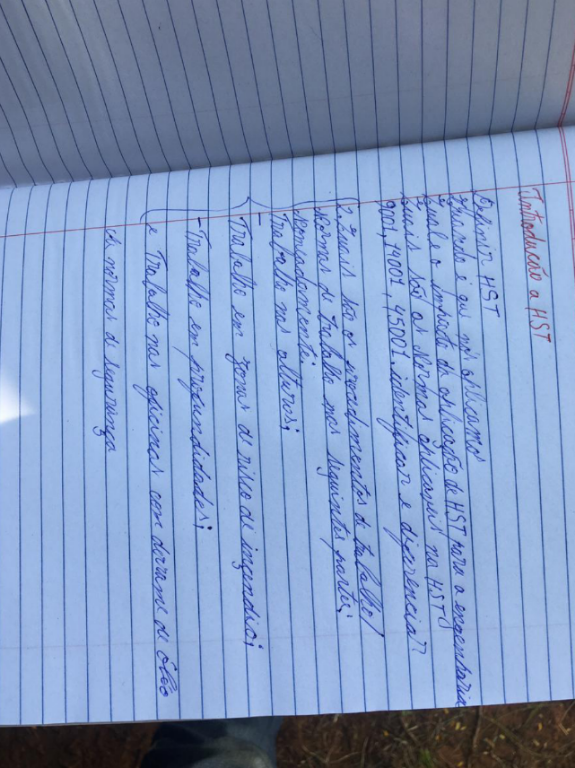 Introdução a HST
Definir HST
Quando é que nós aplicamos
Qual é o impacto da aplicação de HST para a engenharia
Quais são as normas aplicaveis na HST
9001, 14001, 45001 identificar e diferenciar
2. Quais são os procedimentos de trabalho/
normas de trabalho nos seguintes partes;
nas alturas;
Trabalho em zonas de risco de incendio;
- Trabalho em profundidades;
e Trabalho nas oficinas com derrame de óleo
As normas de segurança